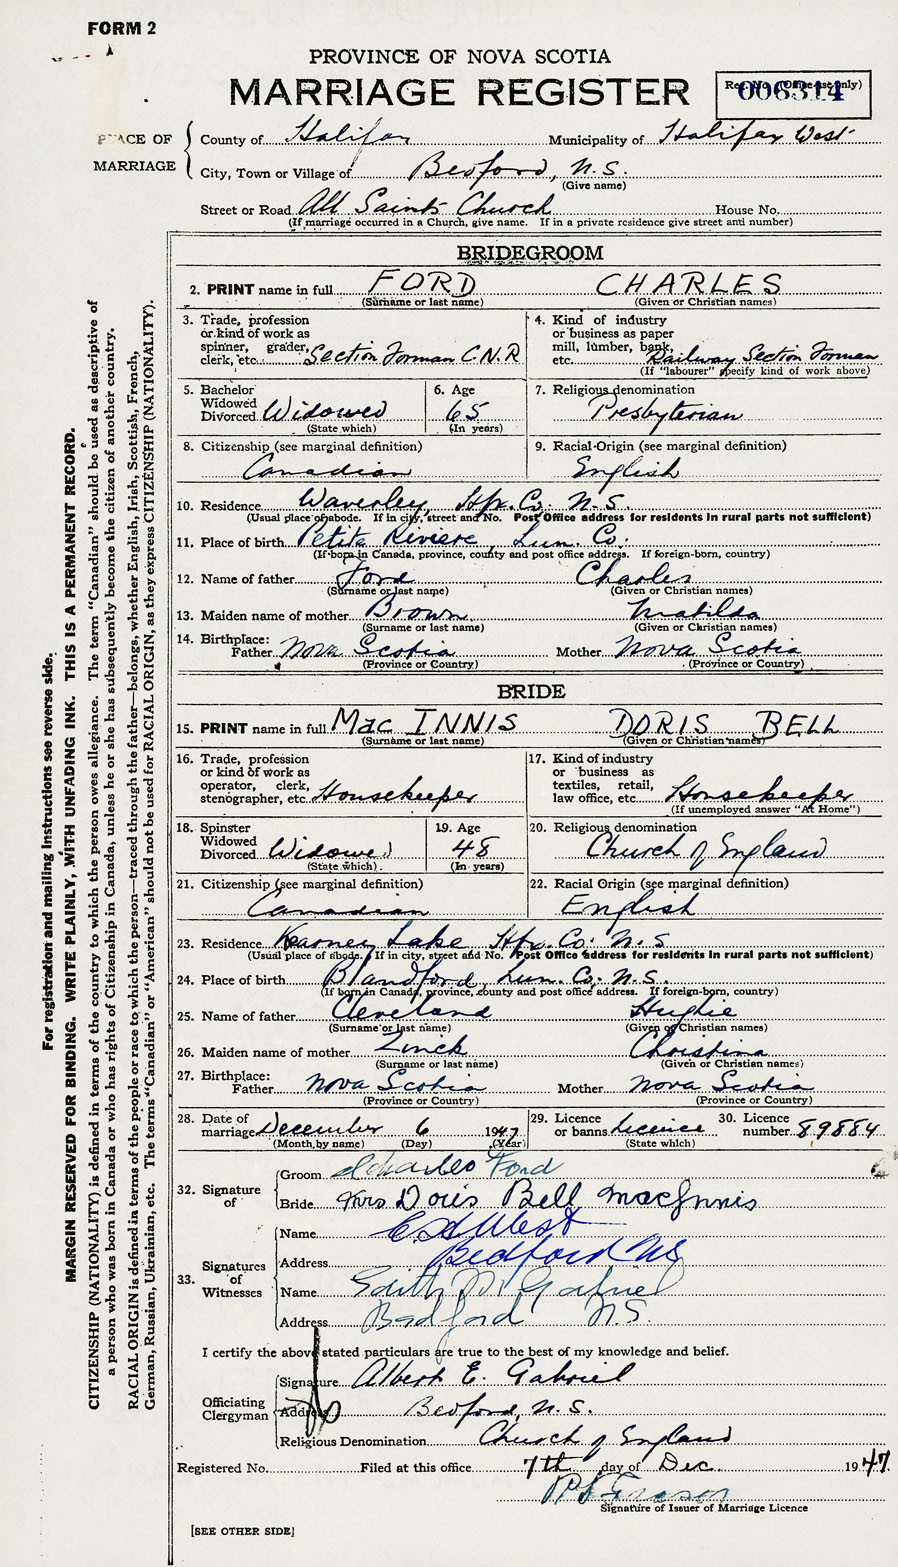 FORM 2
PROVINCE OF NOVA SCOTIA
MARRIAGE REGISTER
Reg. No. (Office use only)
006314
PLACE OF MARRIAGE
County of Halifax Municipality of Halifax West
City, Town or Village of Bedford, N.S.
(Give name)
Street or Road All Saints Church House No.
(If marriage occurred in a Church, give name. If in a private residence give street and number)
BRIDEGROOM
2. PRINT name in full FORD CHARLES
(Surname or last name) (Given or Christian names)
3. Trade, profession or kind of work as spinner, grader, clerk, etc. Section Forman C.N.R
4. Kind of industry or business as paper mill, lumber, bank, etc. Railway Section Forman
(If "labourer" specify kind of work above)
5. Bachelor Widowed Divorced Widowed
(State which)
6. Age 65
(In years)
7. Religious denomination Presbyterian
8. Citizenship (see marginal definition) Canadian
9. Racial Origin (see marginal definition) English
10. Residence Waverley, Hfx. Co. N.S.
(Usual place of abode. If in city, street and No. Post Office address for residents in rural parts not sufficient)
11. Place of birth Petita Riviere Lun. Co.
(If born in Canada, province, county and post office address. If foreign-born, country)
12. Name of father Ford Charles
(Surname or last name) (Given or Christian names)
13. Maiden name of mother Brown Matilda
(Surname or last name) (Given or Christian names)
14. Birthplace: Father Nova Scotia Mother Nova Scotia
(Province or Country) (Province or Country)
BRIDE
15. PRINT name in full Mac INNIS DORIS BELL
(Surname or last name) (Given or Christian names)
16. Trade, profession or kind of work as operator, clerk, stenographer, etc. Housekeeper
17. Kind of industry or business as textiles, retail, law office, etc. Housekeeper
(If unemployed answer "At Home")
18. Spinster Widowed Divorced Widowed
(State which)
19. Age 48
(In years)
20. Religious denomination Church of England
21. Citizenship (see marginal definition) Canadian
22. Racial Origin (see marginal definition) English
23. Residence Kearney Lake Hfx. Co. N.S
(Usual place of abode. If in city, street and No. Post Office address for residents in rural parts not sufficient)
24. Place of birth Blandford, Lun. Co. N.S.
(If born in Canada, province, county and post office address. If foreign-born, country)
25. Name of father Cleveland Hughie
(Surname or last name) (Given or Christian names)
26. Maiden name of mother Zinck Christina
(Surname or last name) (Given or Christian names)
27. Birthplace: Father Nova Scotia Mother Nova Scotia
(Province or Country) (Province or Country)
28. Date of marriage December 6 1947
(Month by name) (Day) (Year)
29. Licence or banns Licence
(State which)
30. Licence number 89884
32. Signature of
Groom Charles Ford
Bride Mrs Doris Bell MacInnis
33. Signatures of Witnesses
Name West
Address Bedford NS
Name Edith M Gabriel
Address Bedford N.S.
I certify the above stated particulars are true to the best of my knowledge and belief.
Officiating Clergyman
Signature Albert E. Gabriel
Address Bedford, N.S.
Religious Denomination Church of England
Registered No. Filed at this office 7th day of Dec. 1947.
Signature of Issuer of Marriage Licence
[SEE OTHER SIDE]
For registration and mailing instructions see reverse side.
MARGIN RESERVED FOR BINDING. WRITE PLAINLY, WITH UNFADING INK. THIS IS A PERMANENT RECORD.
CITIZENSHIP (NATIONALITY) is defined in terms of the country to which the person owes allegiance. The term "Canadian" should be used as descriptive of
a person who was born in Canada or who has rights of Citizenship in Canada, unless he or she has subsequently become the citizen of another country.
RACIAL ORIGIN is defined in terms of the people or race to which the person—traced through the father—belongs, whether English, Irish, Scottish, French,
German, Russian, Ukrainian, etc. The terms "Canadian" or "American" should not be used for RACIAL ORIGIN, as they express CITIZENSHIP (NATIONALITY).